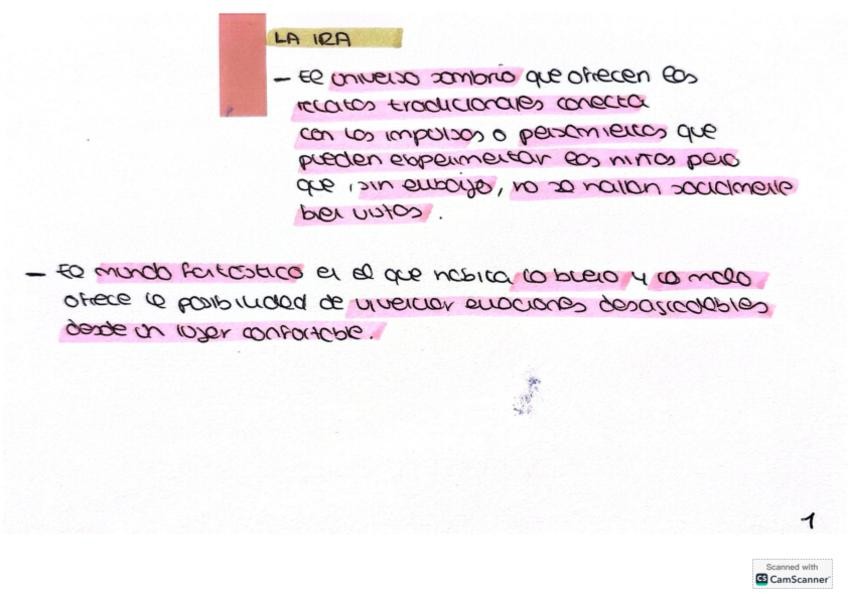 LA IRA
- El universo sombrio que ofrecen los
relatos tradicionales conecta
con los impulsos o pensamientos que
pueden experimentar los niños pero
que, sin embargo, no se hallan socialmente
bien vistos.
- El mundo fantástico en el que habita lo bueno y lo malo
ofrece la posibilidad de vivenciar emociones desagradables
desde un lugar confortable.
1
Scanned with
CS CamScanner